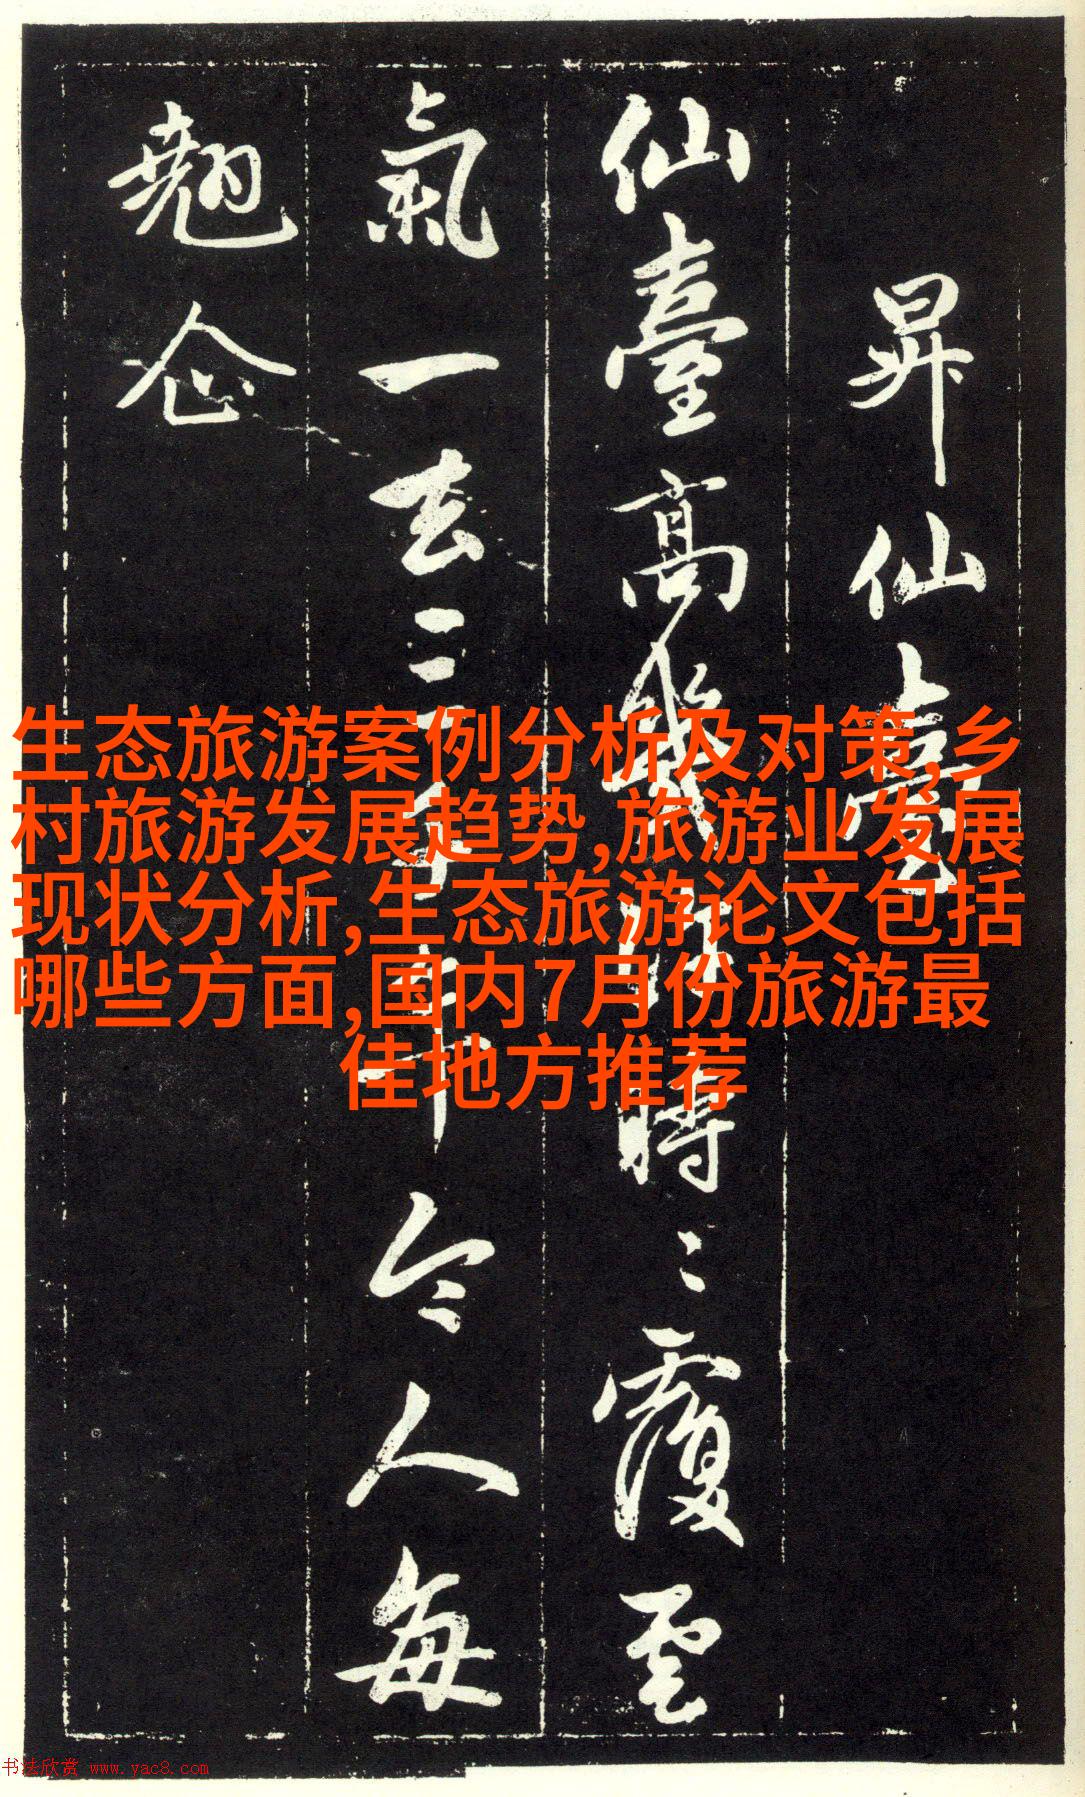 昇仙臺
仙臺高幾時〻覆雲
氣一去三千年令人每
翹企
生态旅游案例分析及对策,乡
村旅游发展趋势,旅游业发展
现状分析,生态旅游论文包括
哪些方面,国内7月份旅游最
佳地方推荐
书法欣赏 www.yac8.com